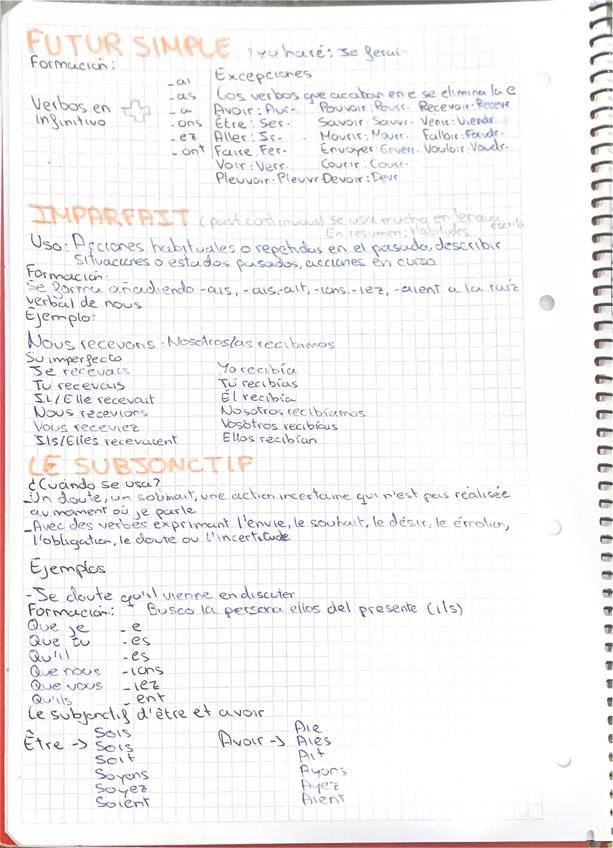 FUTUR SIMPLE ! yo haré: je ferai
Formación:
Verbos en
Infinitivo
_ ai
_ as
_ a
_ ons
_ ez
_ ont
Excepciones
Los verbos que acaban en e se elimina la e
Avoir: Aur- Pouvoir: Pourr- Recevoir: Recevr
Être: Ser- Savoir: Saur- Venir: Viendr
Aller: Ir- Mourir: Mourr- Falloir: Faudr-
Faire Fer- Envoyer: Enverr- Vouloir: Voudr-
Voir: Verr- Courir: Courr-
Pleuvoir: Pleuvr Devoir: Devr
IMPARFAIT (past continuous) se usa mucho en lengua escrita
En resumen: Habitudes
Uso: Acciones habituales o repetidas en el pasado, describir
situaciones o estados pasados, acciones en curso
Formación:
Se forma añadiendo -ais, -ais, -ait, -ions, -iez, -aient a la raíz
verbal de nous
Ejemplo:
Nous recevons: Nosotros/as recibimos
Su imperfecto
Je recevais Yo recibía
Tu recevais Tú recibías
Il/Elle recevait Él recibía
Nous recevions Nosotros recibíamos
Vous receviez Vosotros recibíais
Ils/Elles recevaient Ellos recibían
LE SUBJONCTIF
¿Cuándo se usa?
_ Un doute, un souhait, une action incertaine qui n'est pas réalisée
au moment où je parle
_ Avec des verbes exprimant l'envie, le souhait, le désir, le émotion,
l'obligation, le doute ou l'incertitude
Ejemplos
- Je doute qu'il vienne en discuter
Formación: Busco la persona ellos del presente (ils)
Que je - e
Que tu - es
Qu'il - es
Que nous - ions
Que vous - iez
Qu'ils - ent
Le subjonctif d'être et avoir
Être →
Sois
Sois
Soit
Soyons
Soyez
Soient
Avoir →
Aie
Aies
Ait
Ayons
Ayez
Aient